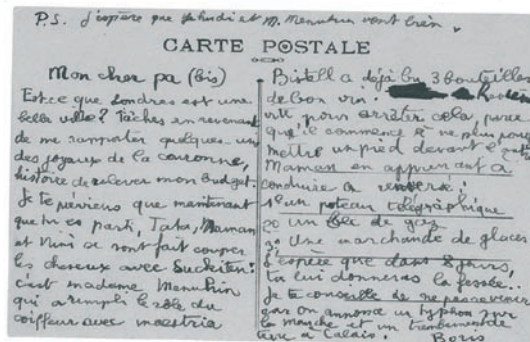 P.S. J'espère que Yehudi et M. Menuhin vont bien.
CARTE POSTALE
Mon cher pa (bis)
Est ce que Londres est une
belle ville? Tâches en revenant
de me rapporter quelques-uns
des joyaux de la couronne,
histoire de relever mon budget.
Je te préviens que maintenant
que tu es parti, Tata, Maman
et Nini se sont fait couper
les cheveux avec
c'est madame Menuhin
qui a rempli le rôle du
coiffeur avec maestria
Bistell a déjà bu 3 bouteilles
de bon vin. Reviens
vite pour arrêter cela, parce
qu'il commence à ne plus pouvoir
mettre un pied devant l'autre
Maman en apprenant à
conduire a renversé:
1° un poteau télégraphique
2° un bec de gaz
3° Une marchande de glaces
J'espère que dans 8 jours,
tu lui donneras la fessée..
Je te conseille de ne pas revenir
car on annonce un typhon sur
la manche et un tremblement de
terre à Calais. Boris